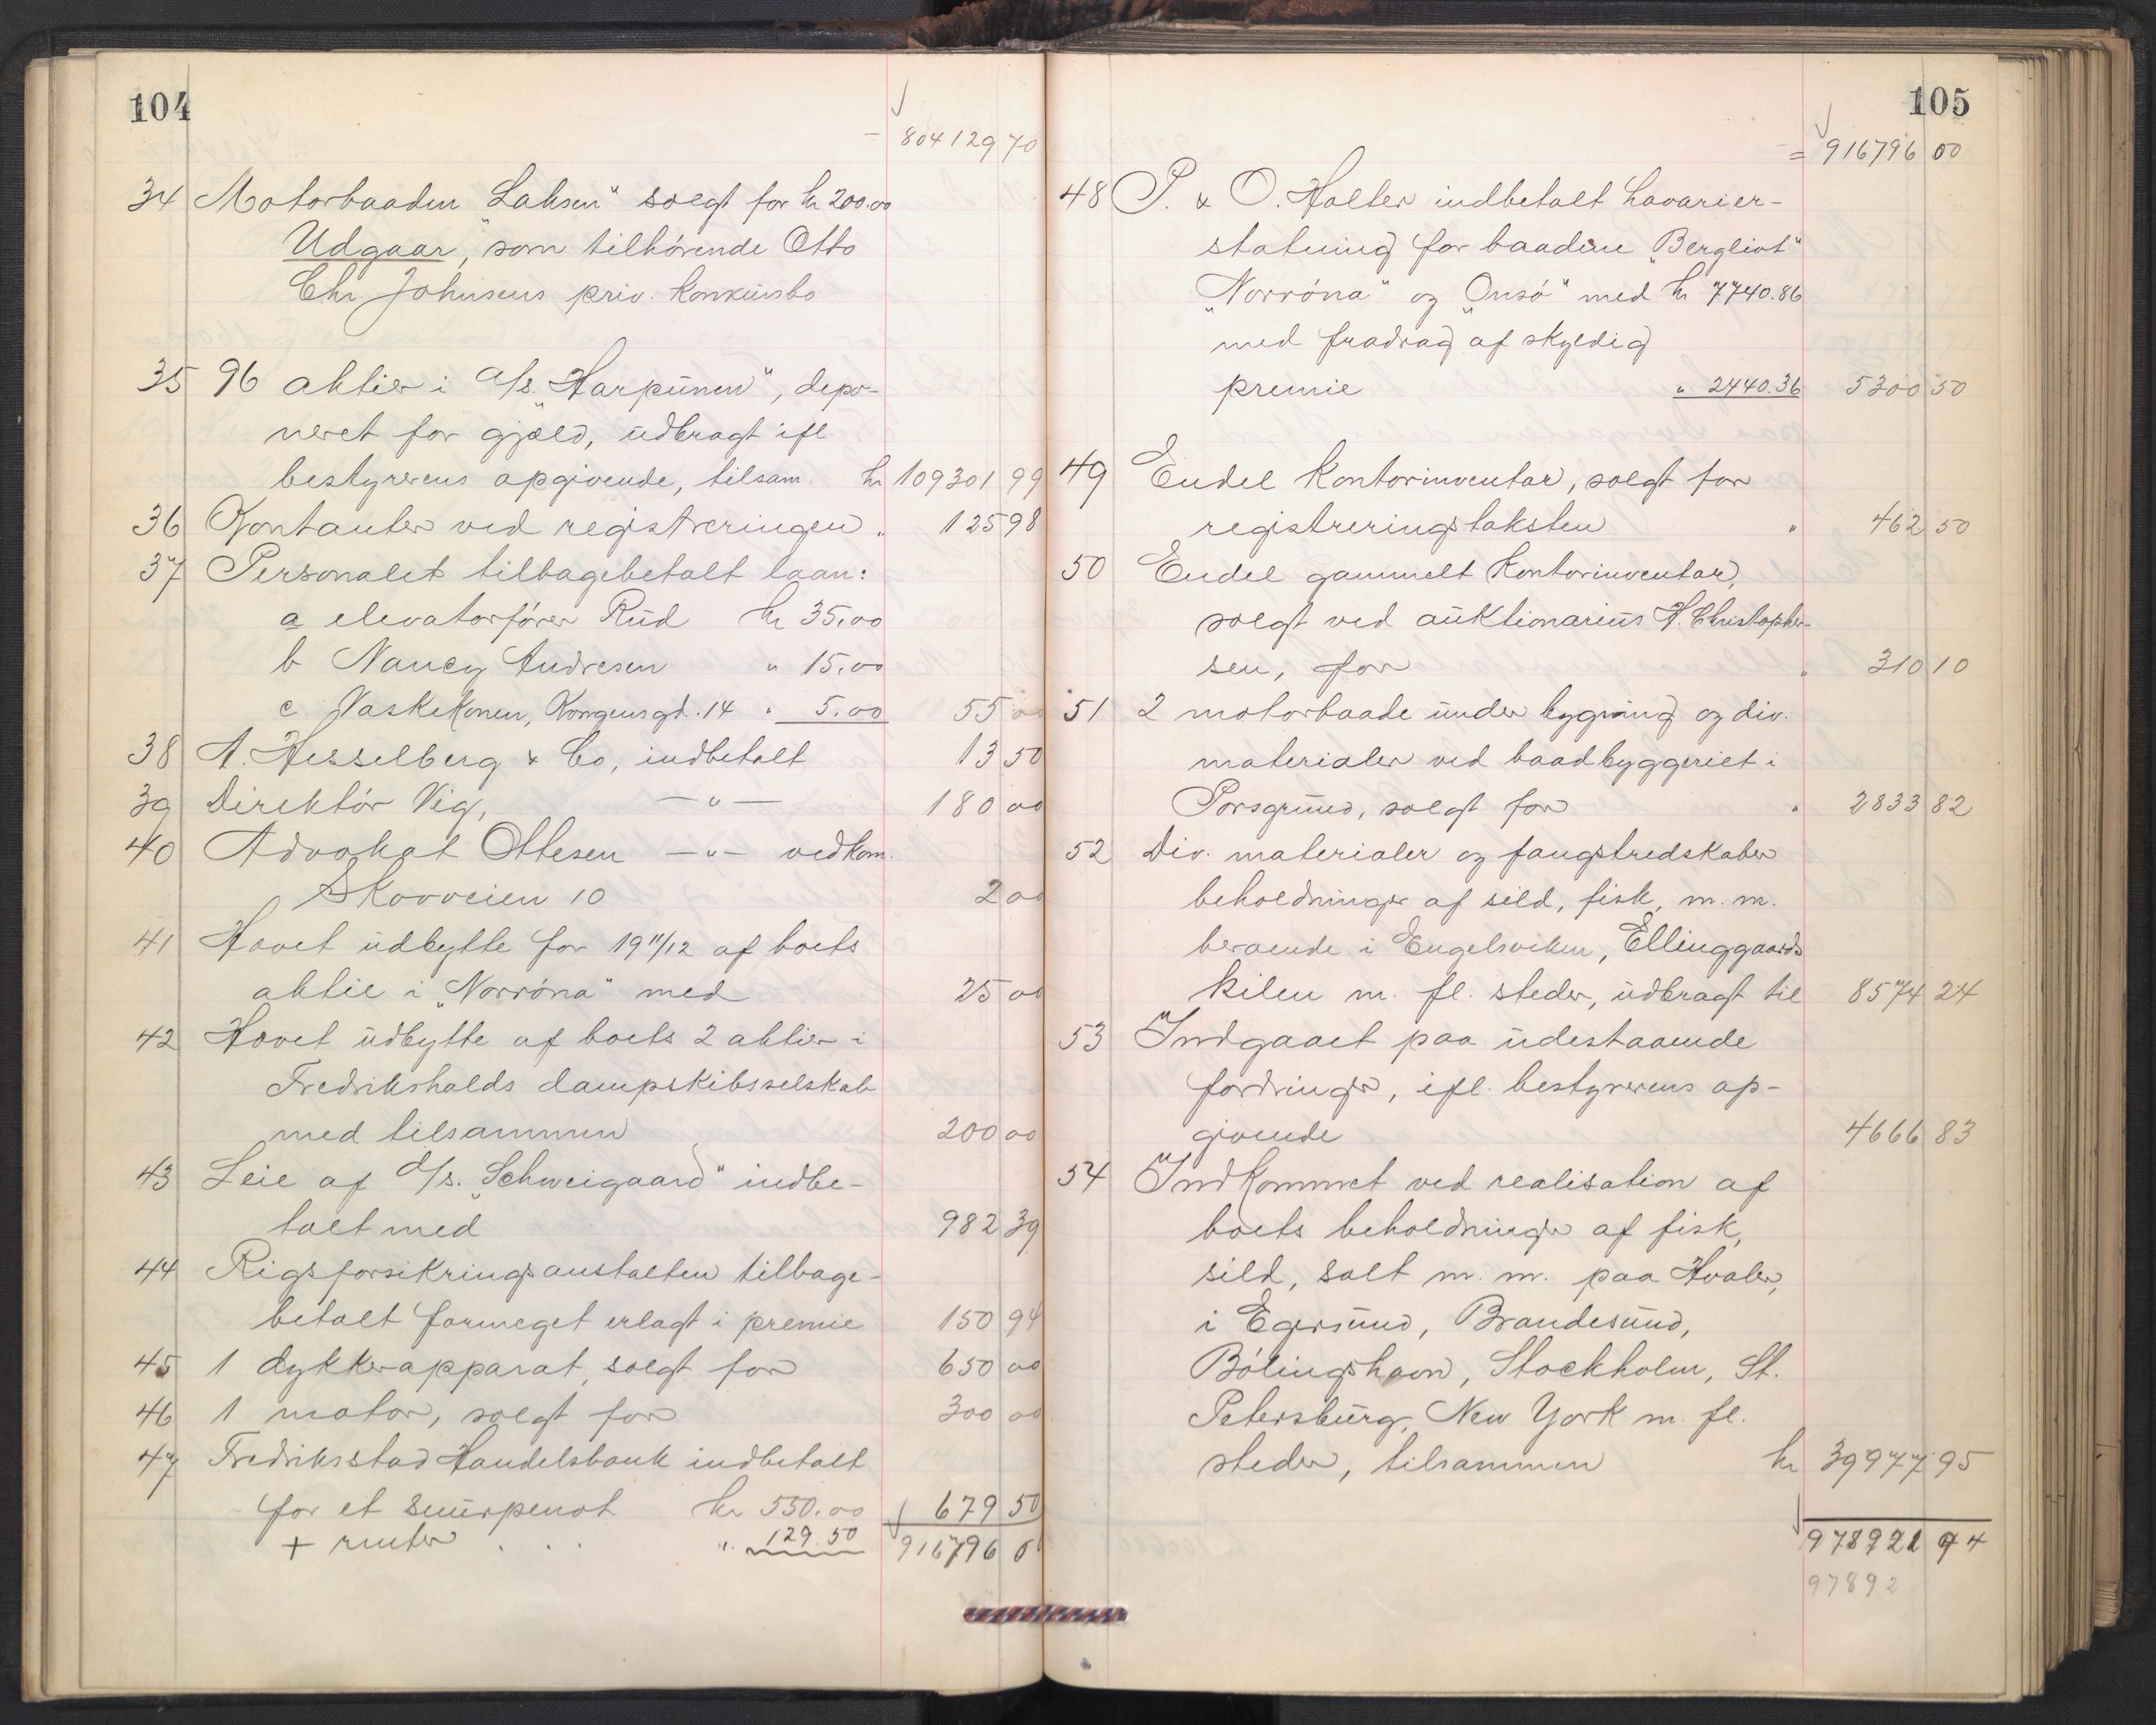 104
804129 70
34 Motorbaaden „Laksen“ solgt for kr 200.00
Udgaar, som tilhörende Otto
Chr. Johnsens priv. konkursbo
35 96 aktier i A/S. „Harpunen“, depo-
neret for gjæld, udbragt ifl.
bestyrerens opgivende, tilsam. kr 109301 99
36 Kontanter ved registreringen " 125 98
37 Personalet tilbagebetalt laan:
a elevatorförer Rud kr 35.00
b Nancy Andresen " 15.00
c Vaskekonen, Kongensgd. 14 " 5.00 55 00
38 A. Hesselberg & Co, indbetalt 13 50
39 Direktör Vig, —"— 180 00
40 Advokat Ottesen —"— vedkom.
Skovveien 10 2 00
41 Hævet udbytte for 1911/12 af boets
aktie i „Norröna“ med 25 00
42 Hævet udbytte af boets 2 aktier i
Fredrikshalds dampskibsselskab
med tilsammen 200 00
43 Leie af d/s. „Schweigaard“ indbe-
talt med 982 39
44 Rigsforsikringsanstalten tilbage-
betalt formeget erlagt i premie 150 94
45 1 dykkerapparat, solgt for 650 00
46 1 motor, solgt for 300 00
47 Fredriksstad Handelsbank indbetalt
for et snurpenot kr 550.00 679 50
+ renter . . . " 129.50 916796 0
105
= 916796 00
48 P. & O. Halter indbetalt havarier-
statning for baadene „Bergliot“
„Norröna“ og „Onsö“ med kr 7740.86
med fradrag af skyldig
premie " 2440.36 5300 50
49 Endel kontorinventar, solgt for
registreringstaksten " 462 50
50 Endel gammelt kontorinventar,
solgt ved auktionarius H. Christopher-
sen, for " 310 10
51 2 motorbaade under bygning og div.
materialer ved baadbyggeriet i
Porsgrund, solgt for " 2833 82
52 Div. materialer og fangstredskaber
beholdninger af sild, fisk, m. m.
beroende i Engelsviken, Ellinggaards
kilen m. fl. steder, udbragt til 8574 24
53 Indgaaet paa udestaaende
fordringer, ifl. bestyrerens op-
givende 4666 83
54 Indkommet ved realisation af
boets beholdninger af fisk,
sild, salt m. m. paa Hvaler,
i Egersund, Brandesund,
Bölingshavn, Stockholm, St.
Petersburg, New York m. fl.
steder, tilsammen kr 39977 95
978921 94
97892